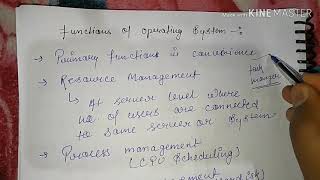 Made With
KINEMASTER
Functions of operating System -:
→ Primary functions is convenience
→ Resource Management
task
manager
↳ At server level where
no. of users are connected
to same server or System
→ Process management
(CPU Scheduling)